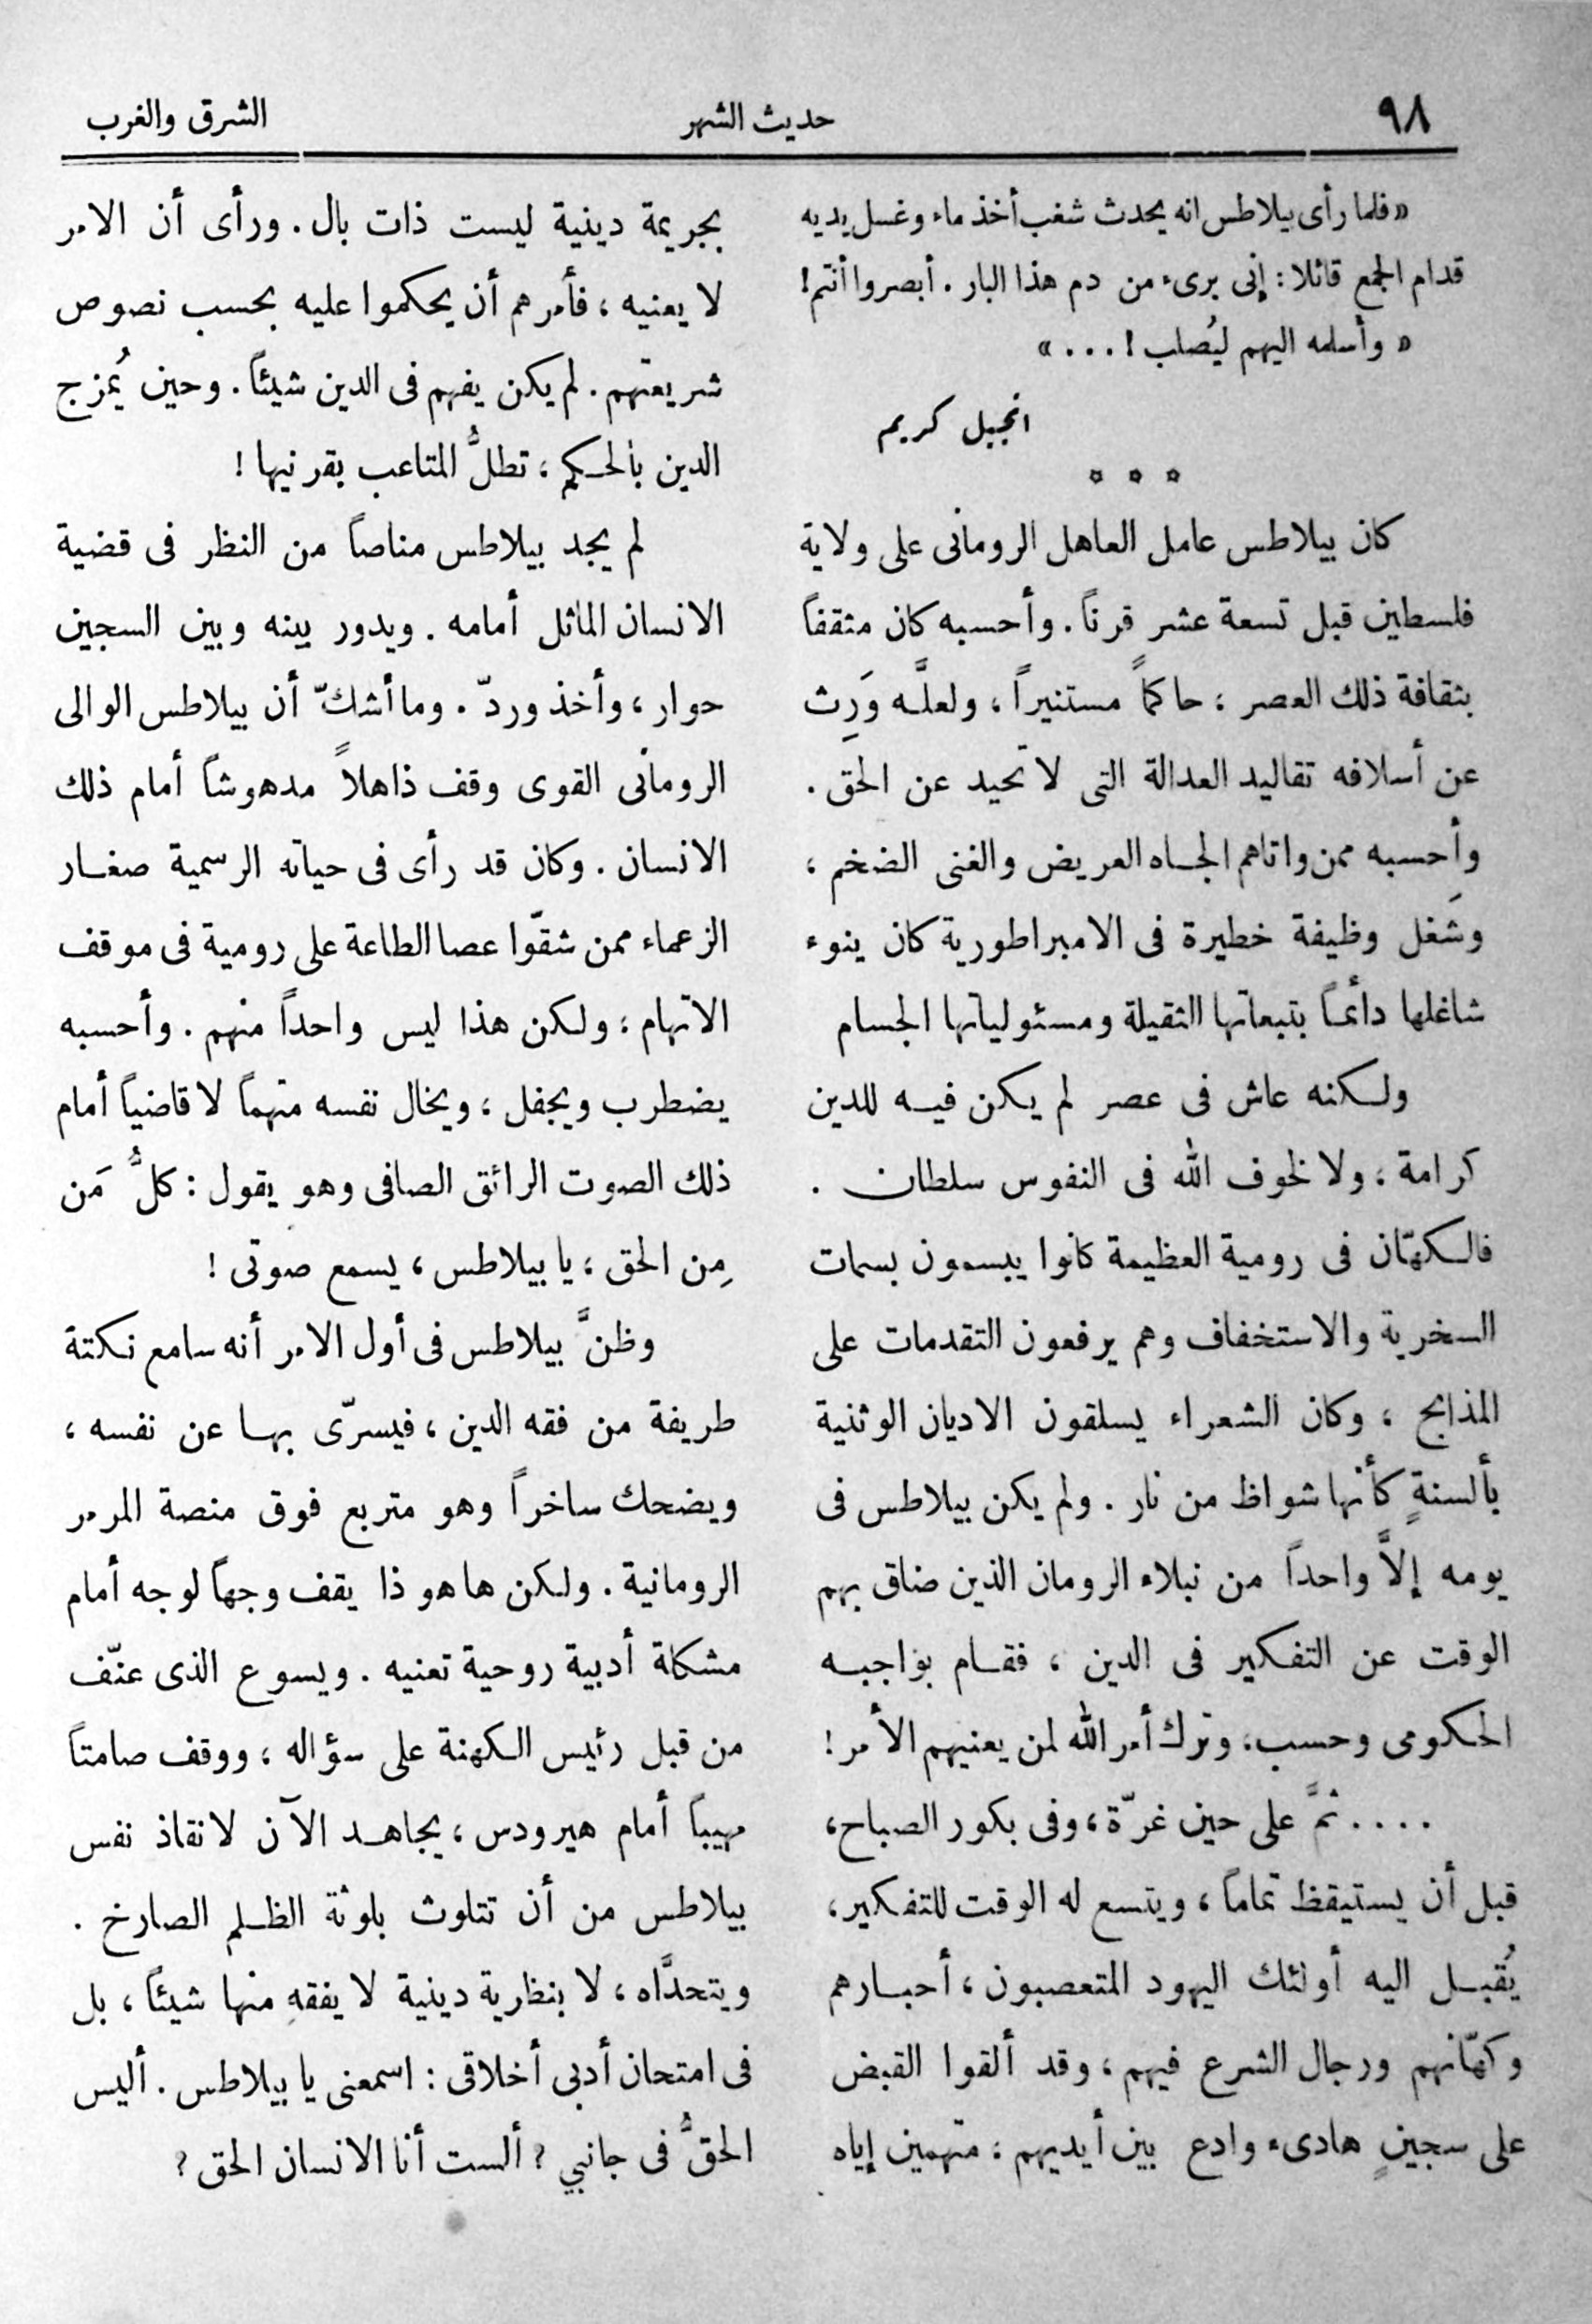 ٩٨
حديث الشهر
الشرق والغرب
«فلما رأى بيلاطس انه يحدث شغب أخذ ماء وغسل يديه
قدام الجمع قائلا: إنى برىء من دم هذا البار. أبصروا أنتم!
« وأسلمه اليهم ليُصلب!...»
انجيل كريم
* * *
كان بيلاطس عامل العاهل الرومانى على ولاية
فلسطين قبل تسعة عشر قرناً. وأحسبه كان مثقفاً
بثقافة ذلك العصر ؛ حاكماً مستنيراً ، ولعلَّه وَرِث
عن أسلافه تقاليد العدالة التى لا تحيد عن الحق .
وأحسبه ممن واتاهم الجاه العريض والغنى الضخم ؛
وشَغل وظيفة خطيرة فى الامبراطورية كان ينوء
شاغلها دائماً بتبعاتها الثقيلة ومسئولياتها الجسام
ولكنه عاش فى عصر لم يكن فيه للدين
كرامة ؛ ولا لخوف الله فى النفوس سلطان .
فالكهّان فى رومية العظيمة كانوا يبسمون بسمات
السخرية والاستخفاف وهم يرفعون التقدمات على
المذابح ؛ وكان الشعراء يسلقون الاديان الوثنية
بألسنةٍ كأنها شواظ من نار . ولم يكن بيلاطس فى
يومه إلاَّ واحداً من نبلاء الرومان الذين ضاق بهم
الوقت عن التفكير فى الدين ، فقام بواجبه
الحكومى وحسب، وترك أمر الله لمن يعنيهم الأمر!
.... ثمَّ على حين غرّة ، وفى بكور الصباح ،
قبل أن يستيقظ تماماً ، ويتسع له الوقت للتفكير ،
يُقبل اليه أولئك اليهود المتعصبون ، أحبارهم
وكهّانهم ورجال الشرع فيهم ، وقد ألقوا القبض
على سجينٍ هادىء وادع بين أيديهم ؛ متهمين إياه
بجريمة دينية ليست ذات بال . ورأى أن الامر
لا يعنيه ، فأمرهم أن يحكموا عليه بحسب نصوص
شريعتهم. لم يكن يفهم فى الدين شيئاً. وحين يُمزج
الدين بالحكم ؛ تطلُّ المتاعب بقرنيها !
لم يجد بيلاطس مناصاً من النظر فى قضية
الانسان الماثل أمامه . ويدور بينه وبين السجين
حوار ، وأخذ وردّ . وما أشكّ أن بيلاطس الوالى
الرومانى القوى وقف ذاهلاً مدهوشاً أمام ذلك
الانسان . وكان قد رأى فى حياته الرسمية صغار
الزعماء ممن شقّوا عصا الطاعة على رومية فى موقف
الاتهام ؛ ولكن هذا ليس واحداً منهم . وأحسبه
يضطرب ويجفل ، ويخال نفسه متهماً لا قاضياً أمام
ذلك الصوت الرائق الصافى وهو يقول : كلُّ مَن
مِن الحق ، يا بيلاطس ، يسمع صوتى !
وظنَّ بيلاطس فى أول الامر أنه سامع نكتة
طريفة من فقه الدين ، فيسرّى بها عن نفسه ،
ويضحك ساخراً وهو متربع فوق منصة المرمر
الرومانية . ولكن ها هو ذا يقف وجهاً لوجه أمام
مشكلة أدبية روحية تعنيه . ويسوع الذى عنّف
من قبل رئيس الكهنة على سؤاله ، ووقف صامتاً
مهيباً أمام هيرودس ، يجاهد الآن لانقاذ نفس
بيلاطس من أن تتلوث بلوثة الظلم الصارخ .
ويتحدَّاه ، لا بنظرية دينية لا يفقه منها شيئاً ، بل
فى امتحان أدبى أخلاقى : اسمعنى يا بيلاطس . أليس
الحقُّ فى جانبي ؟ ألست أنا الانسان الحق ؟